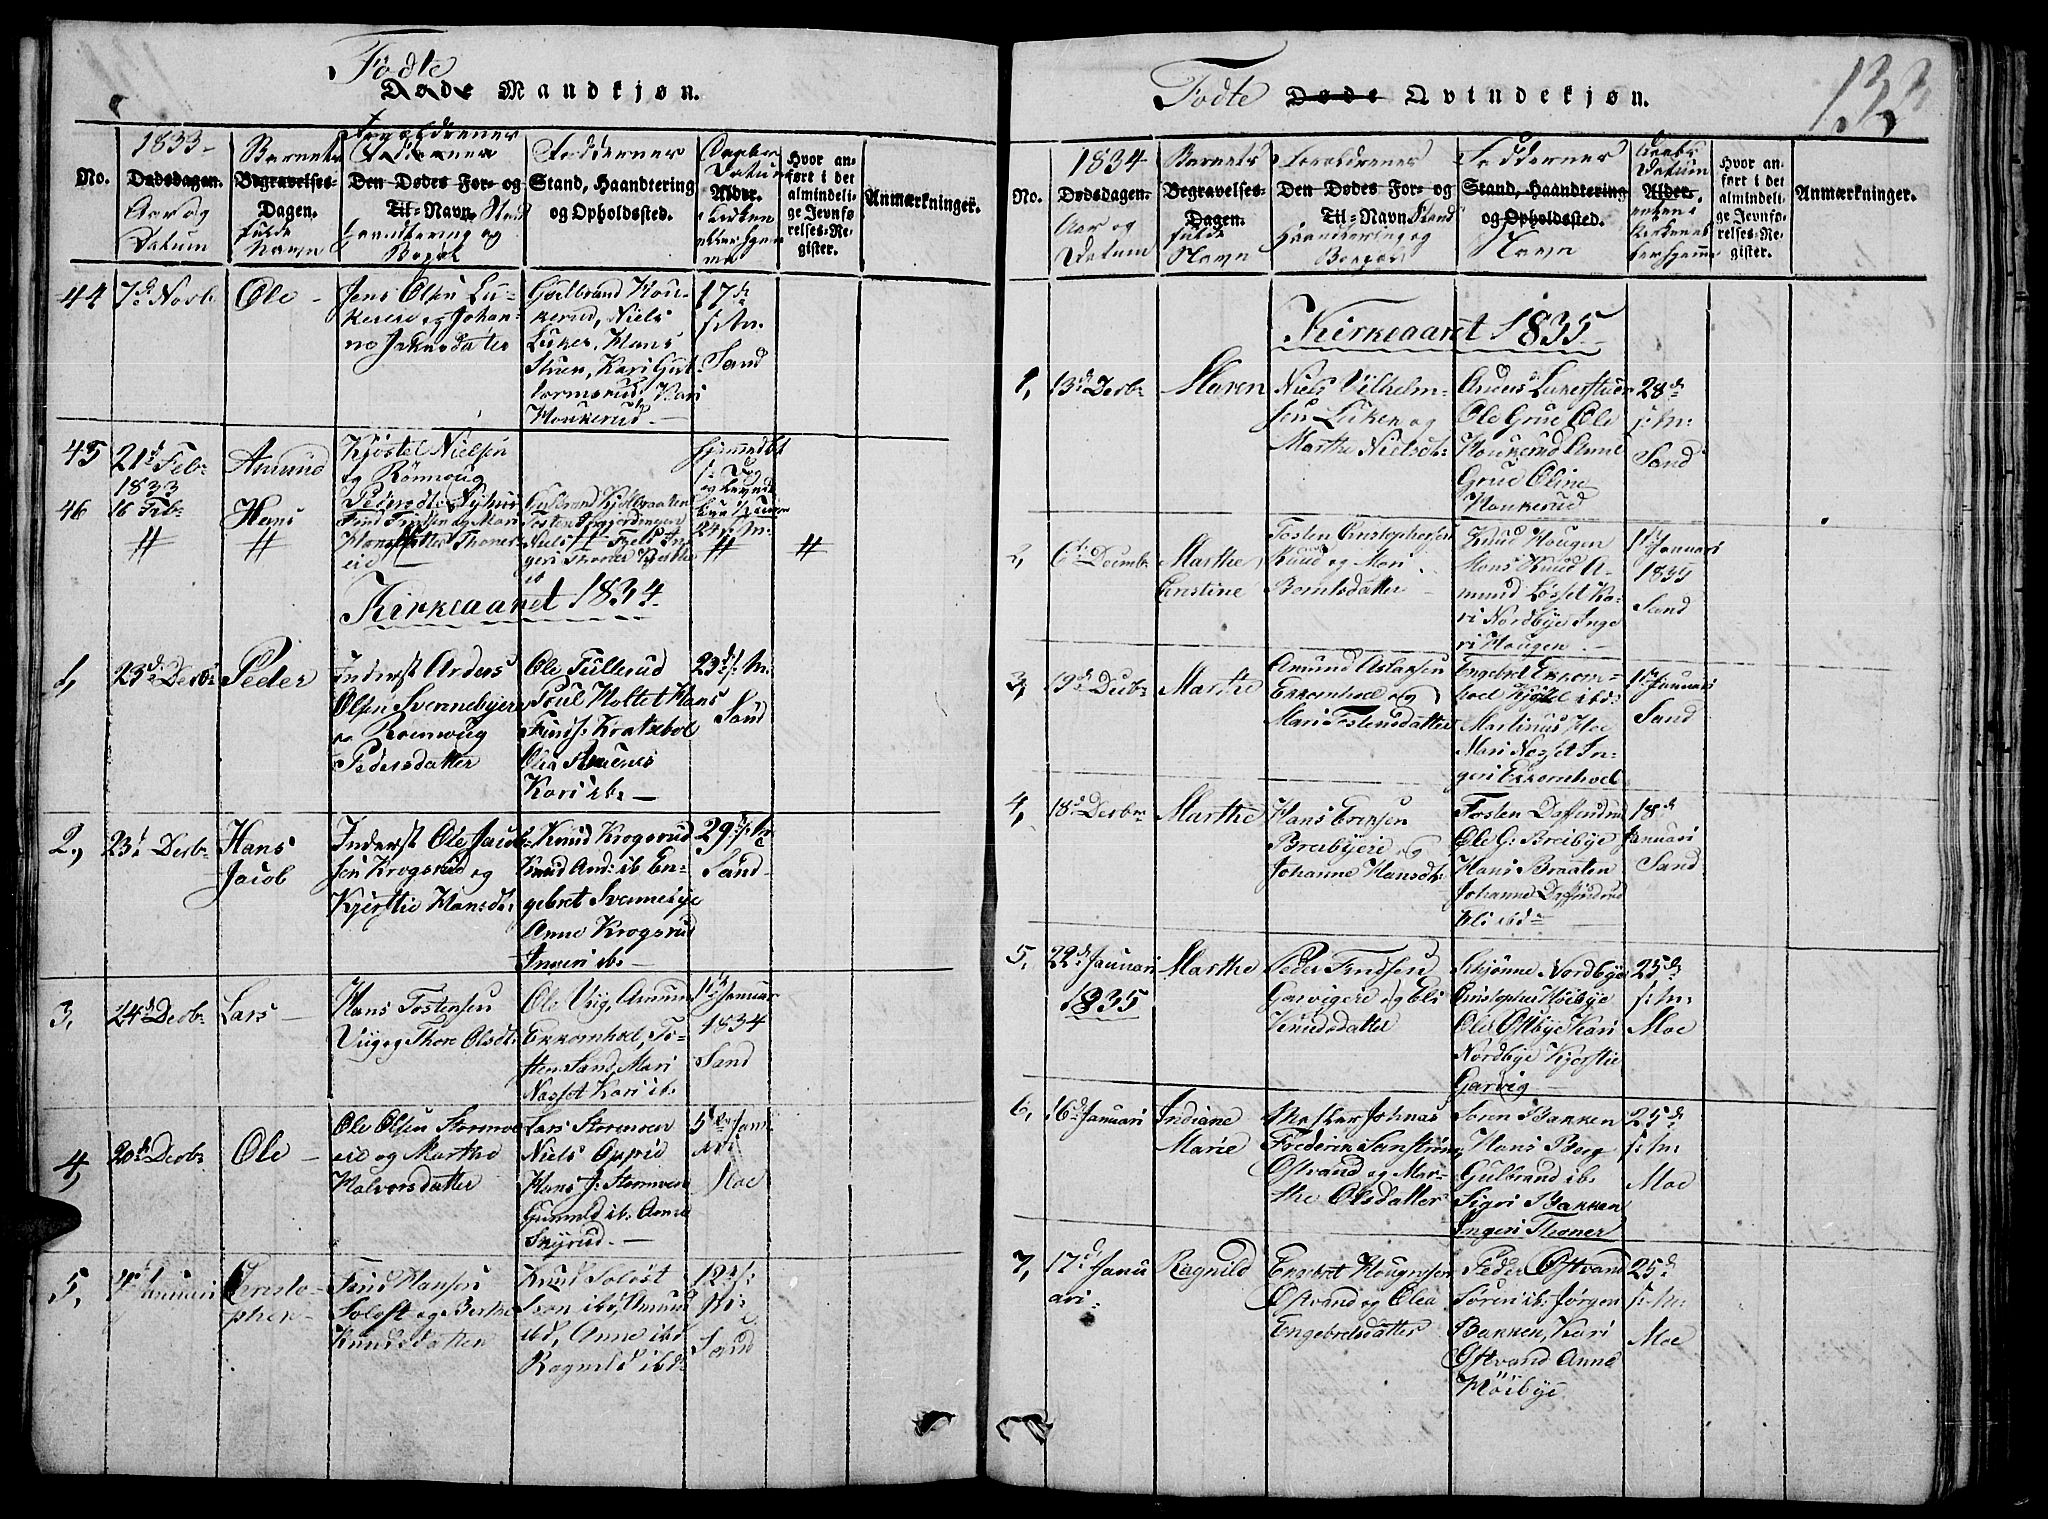 Fødte
Døde Mandkjøn.
1833-
No.
Dødsdagen.
Aar og
Datum
Barnets
Begravelses-
Dagen.
fulde
Navn
Forældrenes
Den Dødes For- og
Til-Navn Stand
Haandtering og
Bopæl
Faddernes
Stand, Haandtering
og Opholdssted.
Daabs
Datum
Alder.
Hvor an-
ført i det
almindeli-
ge Jevnfø-
relses-Re-
gister.
Anmærkninger.
44 7de Novb Ole -
Jens Olsen Lu-
kerere og Johan-
ne Jakusdatter
Gulbrand Hou-
kerud, Niels
Luker, Hans
Stuen, Kari Gut-
tormsrud, Mari
Houkerud -
17de
s: M:
Sand
45 21d Feb:
1833
Amund
Kjøstel Nielsen
og Rønnoug
46 16 Feb:
Hans
Find Findsen og Mari
Hansdatter Thoner-
eie
24 s: M:
Kirkeaaret 1834.
1, 23d Decbr Peder
Inderst Anders
Olsen Svennebyeie
og Rønnoug
Pedersdatter
Ole Tullerud
Poul Holtet Hans
Finds: Kratebøl
Olea
Kari ib: -
23d s: M:
Sand
2, 23d Decbr Hans
Jacob
Inderst Ole Jacob-
sen Krogsrud og
Kjerstie Hansdt:
Knud Krogsrud
Knud And: ib. En-
gebret Svennebye
Anne Krogsrud
Ingeri ib: -
29d s: M:
Sand -
3, 24d Decbr Lars -
Hans Tostensen
Viig og Thore Olsdt:
Ole Viig, Amun
Ekkornhoel, To-
sten Sand, Mari
Næsset Kari ib:
1ste Januar
1834
Sand
4, 20d Decbr Ole -
Ole Olsen Stormoe
eie og Marthe
Halvorsdatter
Lars Stormoen
Niels Opprid
Hans J: Stormoen
Gunnild ib: Anne
Skyrud. -
5te Janu-
ari
Moe
5, 4d Januari Christo-
pher -
Find Hansen
Soløst og Berthe
Knudsdatter
Knud Soløst
Iver ibd, Amund
ibd, Anne ibd
Ragnild ibd:
12d s:
M:
Sand
Fødte Døde Qvindekjøn.
133
1834
No.
Dødsdagen.
Aar og
Datum
Barnets
Begravelses-
Dagen.
fulde
Navn
Forældrenes
Den Dødes For- og
Til-Navn Stand
Haandtering og
Bopæl
Faddernes
Stand, Haandtering
og Opholdssted.
Navn
Daabs
Datum
Alder.
enten i
Kirken el-
ler hjemme
Hvor an-
ført i det
almindeli-
ge Jevnfø-
relses-Re-
gister.
Anmærkninger.
Kirkeaaret 1835
1, 13d Decbr Maren
Niels Vilhelm-
sen Luken og
Marthe Nielsdt:
Anders Lukerstuen
Ole Grue Ole
Houkerud Anne
Grue Oline
Houkerud
28d
s: M:
Sand
2, 6te Decmbr Marthe
Christine
Tosten Christophersen
Ruud og Mari
Berntsdatter -
Knud Hougen
Hans Ruud A-
mund Løsset Ka-
ri Nordbye Inge
ri Hougen. -
1ste Januari
1835
Sand
3, 19d Decbr Marthe
Amund Aslaksen
Ekkornhoel og
Mari Tostensdatter
Engebret Ekkorn-
hoel Kjøstel ibd:
Martinus Moe
Mari Næsset In-
geri Ekkornhoel
1ste Januari
Sand
4, 18d Decbr Marthe
Hans Eriksen
Breibyeie og
Johanne Hansdt:
Tosten Daffinrud
Ole G: Breibye
Hans Braaten
Johanne Daffinrud
Eli ibd -
18d
Januari
Sand
5, 22d Januari
1835
Marthe
Peder Findsen
Garvigeie og Eli
Knudsdatter
Schjønne Nordbye
Christopher Høibye
Ole Ostbye Kari
Nordbye Kjerstie
Garvig -
25d
s: M:
Moe
6, 16d Januari Indiane
Marie
Skolelær Johnas
Frederik Sanstrøm
Ostvand og Mar-
the Olsdatter
Søren Bakken
Hans Berg
Gulbrand ib:
Sigri Bakken
Ingeri Thoner
25d
s: M:
Moe
7, 17d Janu
ari:
Ragnild
Engebret Hougensen
Ostvand og Olea
Engebretsdatter
Peder Ostvand
Søren ib: Jørgen
Bakken, Kari
Ostvand Anne
Høibye
25d
s: M:
Moe